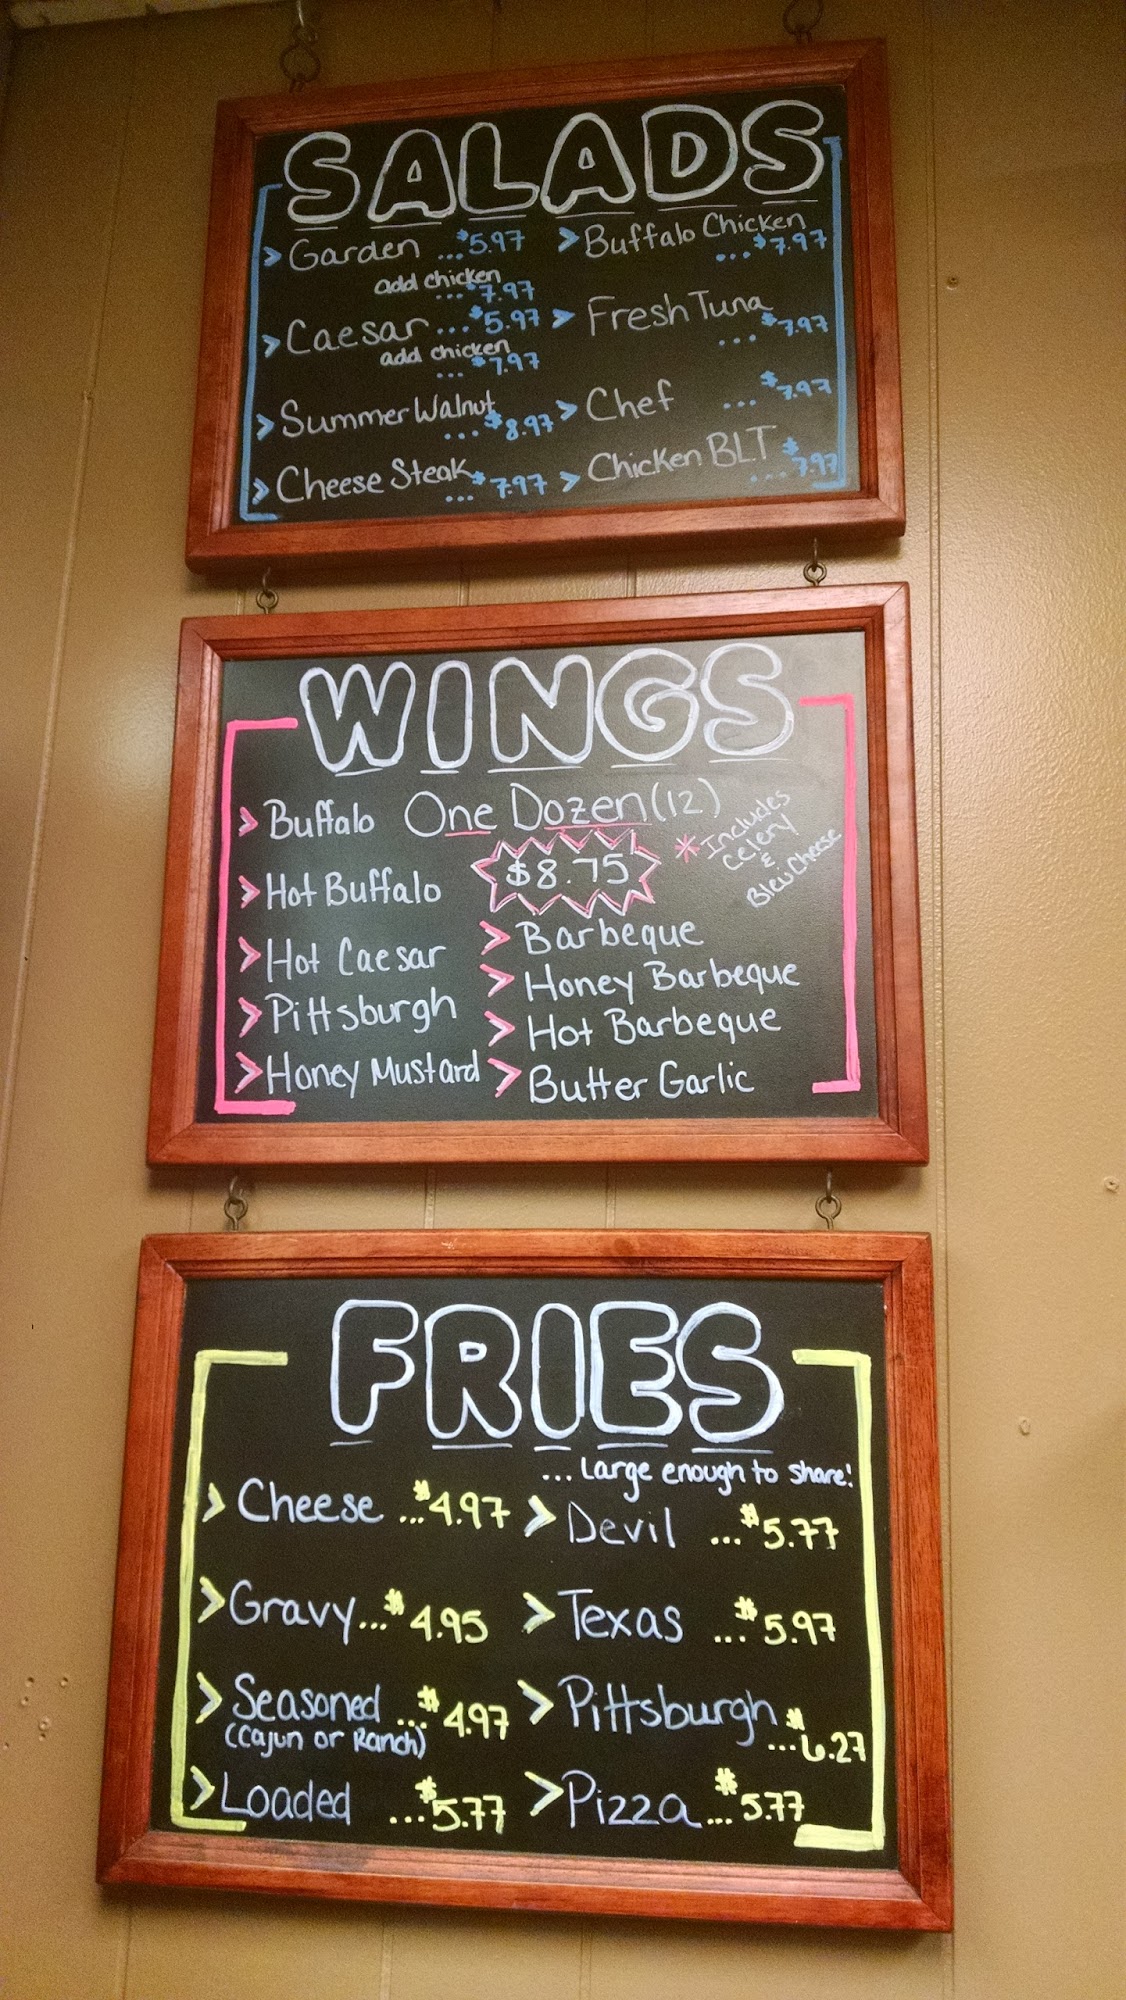 SALADS
> Garden ...$5.97
add chicken
...$7.97
> Caesar ...$5.97
add chicken
...$7.97
> Summer Walnut
...$8.97
> Cheese Steak
...$7.97
> Buffalo Chicken
...$7.97
> Fresh Tuna
...$7.97
> Chef ...$7.97
> Chicken BLT
...$7.97
WINGS
One Dozen (12)
$8.75
* Includes
Celery
&
Bleu Cheese
> Buffalo
> Hot Buffalo
> Hot Caesar
> Pittsburgh
> Honey Mustard
> Barbeque
> Honey Barbeque
> Hot Barbeque
> Butter Garlic
FRIES
... Large enough to share!
> Cheese ...$4.97
> Gravy ...$4.95
> Seasoned ...$4.97
(Cajun or Ranch)
> Loaded ...$5.77
> Devil ...$5.77
> Texas ...$5.97
> Pittsburgh
...$6.27
> Pizza ...$5.77